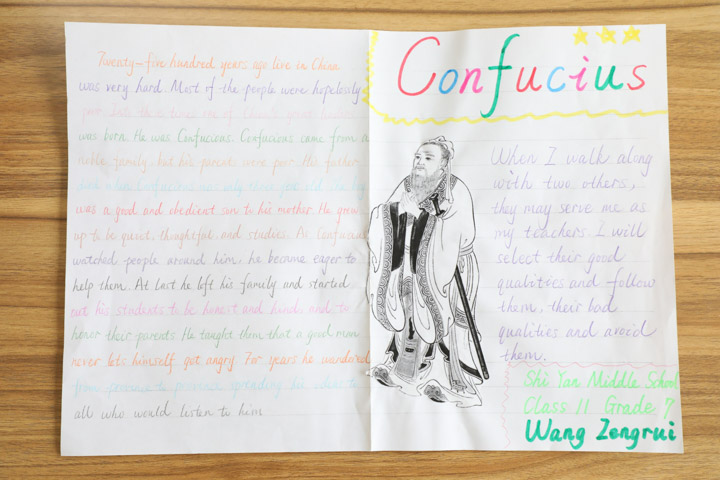 Twenty-five hundred years ago live in China
was very hard. Most of the people were hopelessly
was born. He was Confucious. Confucious came from a
noble family, but his parents were poor. His father
was a good and obedient son to his mother. He grew
up to be quiet, thoughtful, and studies. As Confucius
watched people around him. he became eager to
help them. At last he left his family and started
out his students to be honest and kinds and to
honor their parents. He taught them that a good man
never lets himself got angry. For years he wandered
from province to province spreading his
all who would listen to him
Confucius
When I walk along
with two others,
they may serve me as
my teachers. I will
select their good
qualities and follow
them, their bad
qualities and avoid
them.
Shi Yan Middle School
Class 11 Grade 7
Wang Zengrui